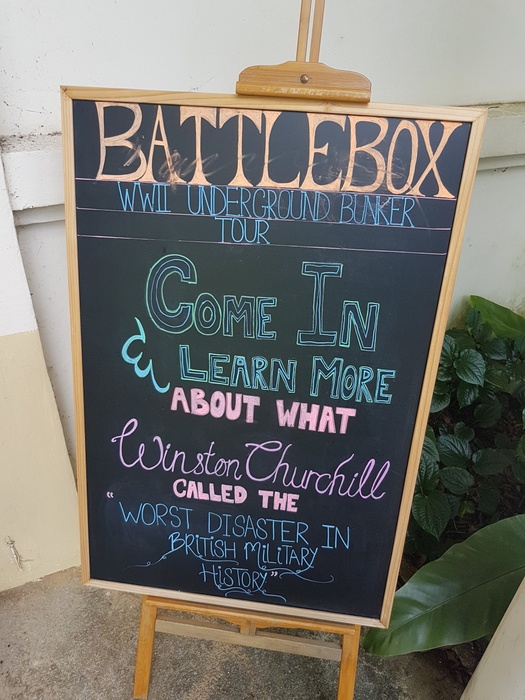 BATTLEBOX
WWII UNDERGROUND BUNKER
TOUR
COME IN
& LEARN MORE
ABOUT WHAT
Winston Churchill
CALLED THE
"WORST DISASTER IN
BRITISH MILITARY
HISTORY"